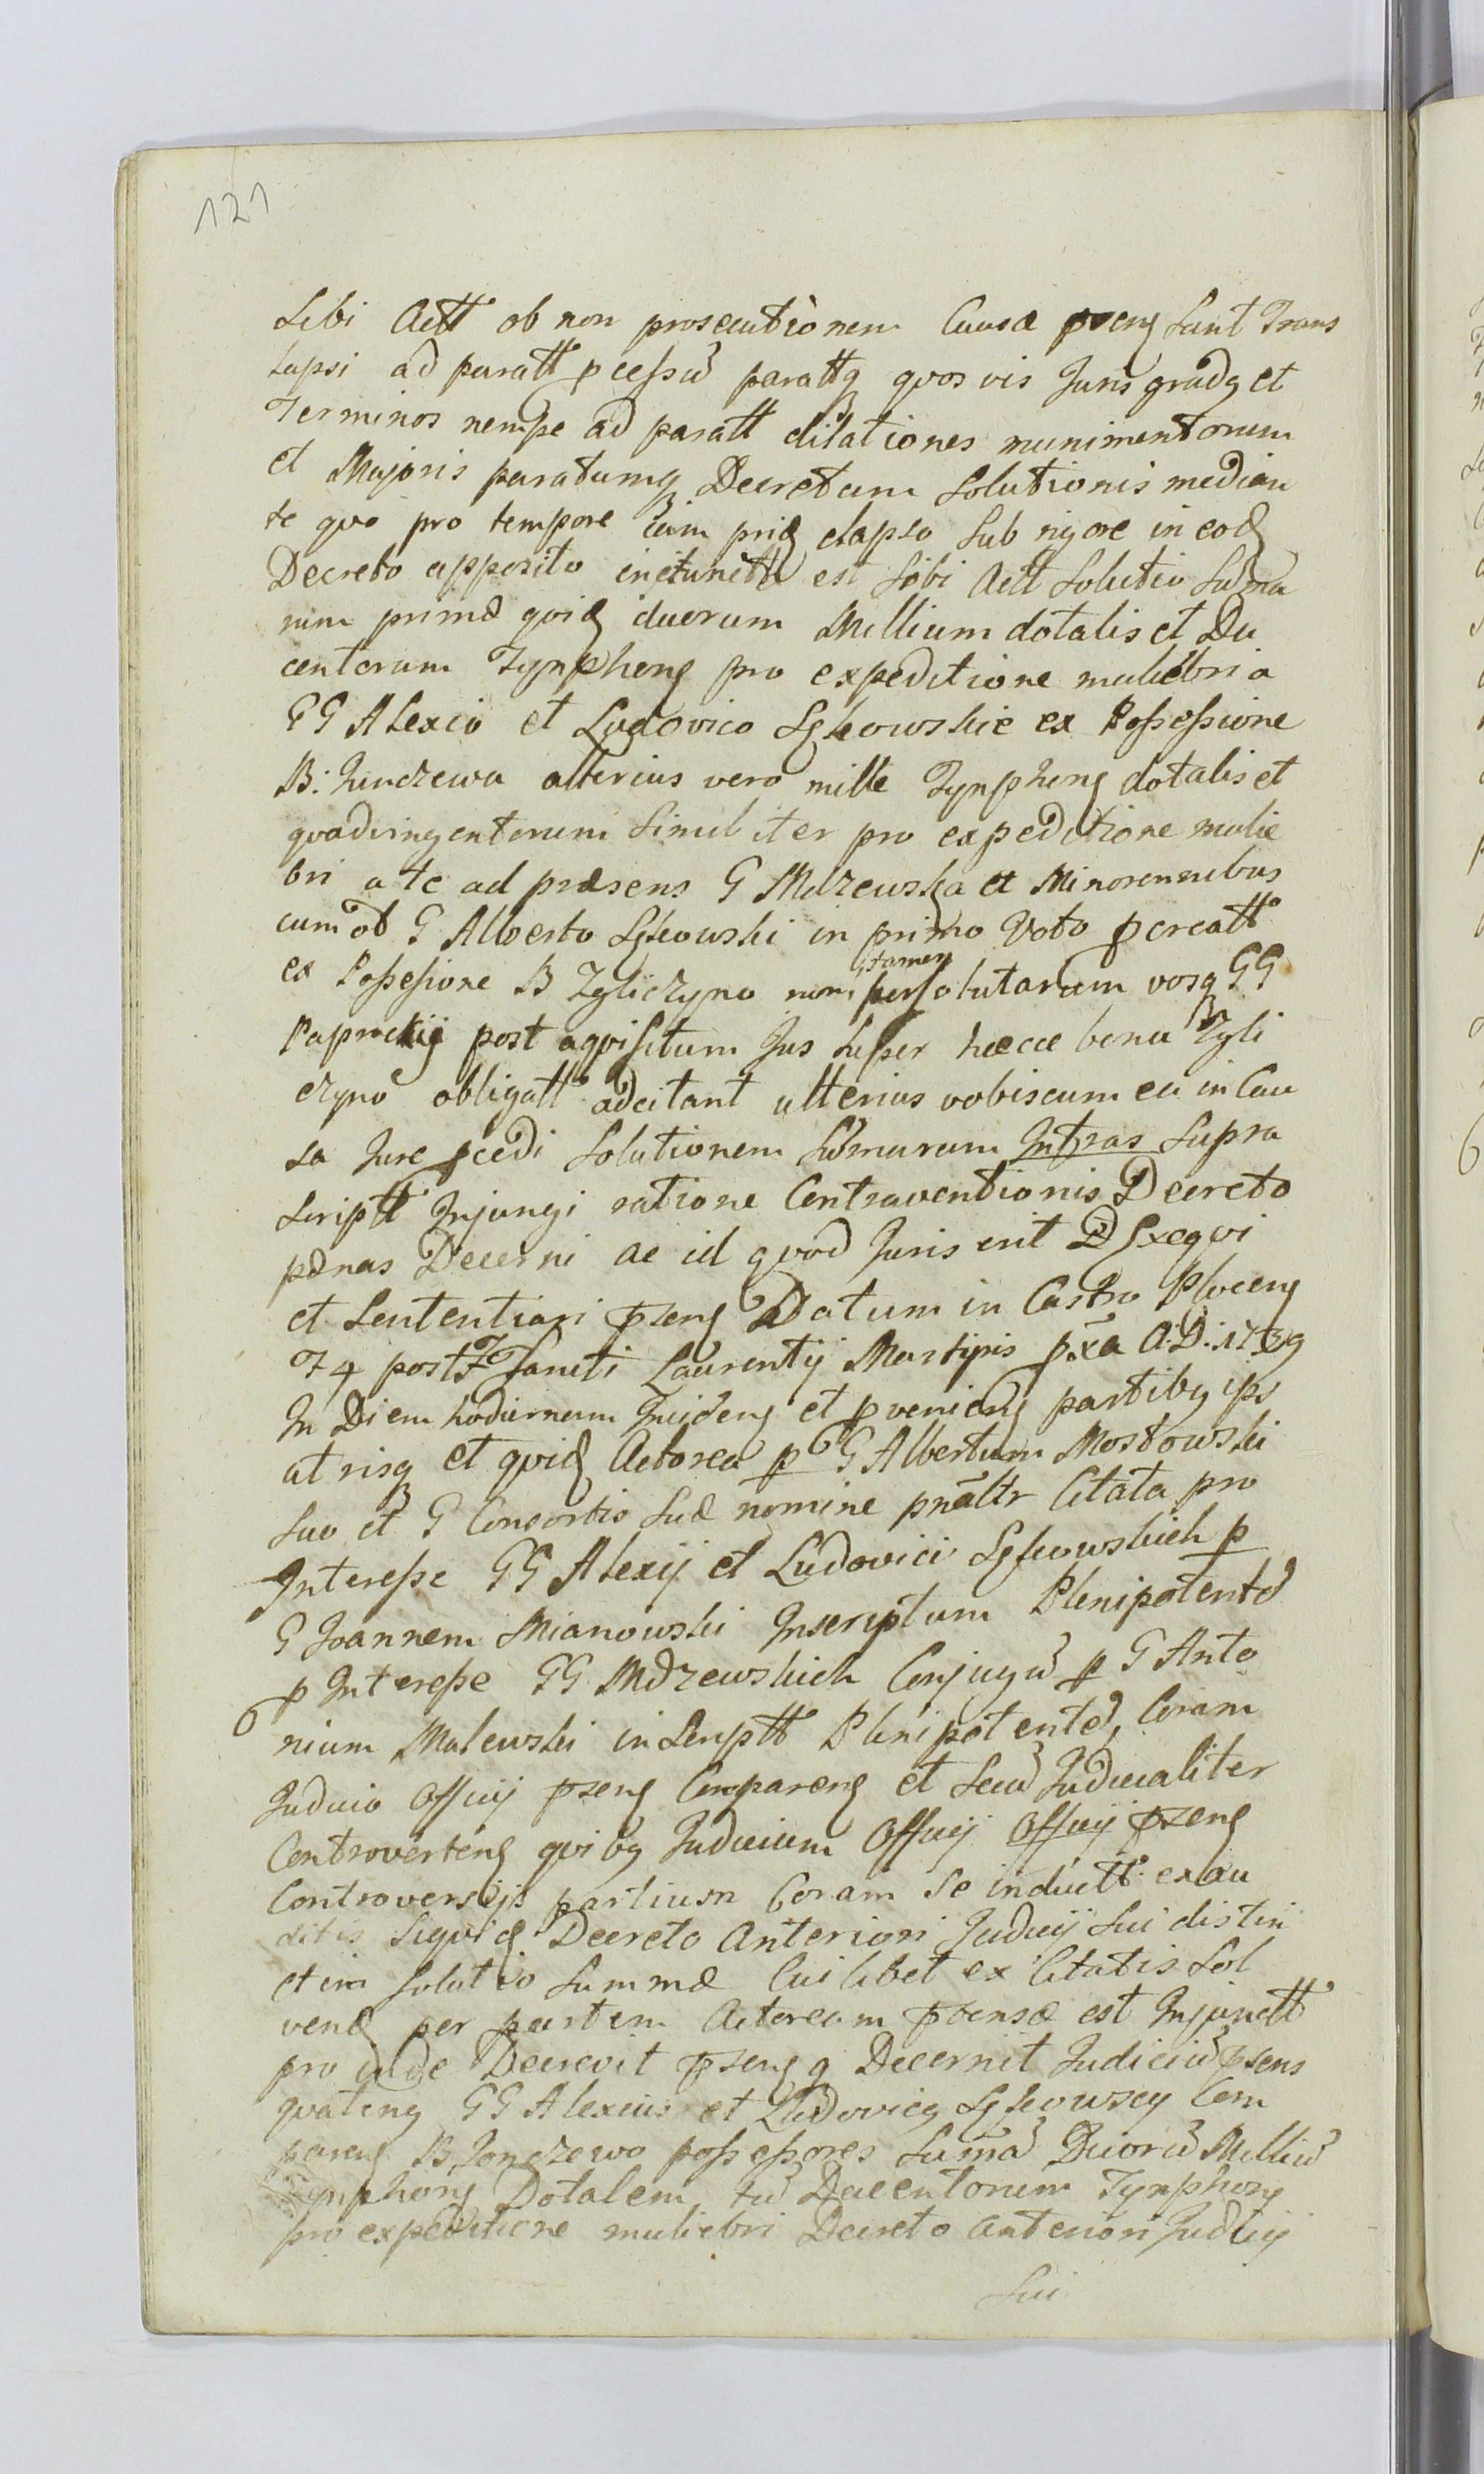 121
Sibi Actt ob non prosecutionem Causæ pseng sunt Trans
lapsi ad paratt pcessū parattq quosvis Juris gradg et
Terminos nempe ad paratt dilationes munimentorum
et Majoris paratumq Decretum Solutionis median
te quo pro tempore iam prid elapso Sub rigore in eod
Decreto apposito iniunctū est Sibi Actt Solutio Suma
rum primæ quid duorum Millium dotalis et Du
centorum Tympheng pro expeditione muliebri a
GG Alexio et Ludovico Lgkowskie ex Possessione
B: Junczewa alterius vero mille Tympheng dotalis et
quadringentorum Similiter pro expeditione mulie
bri a te ad præsens G Mdzewska et Minorennibus
cum ol G Alberto Lgkowski in primo Voto pcreatt
ex Possessione B Zgliczyno non tamen persolutarum vosq GG
Paprockij post aqvisitum Jus super hæcce bona Zgli
czyno obligatt adcitant ulterius vobiscum ea in Cau
sa Jure pcedi Solutionem Sūmarum Infras Supra
scriptt Injungi ratione Contraventionis Decreto
pænas Decerni ac id quod Juris erit Exeqvi
et Sententiari pseng Datum in Castro Ploceng
F 4 post F Sancti Laurentij Martyris pxa A:D: 1739
In Diem hodiernum Incideng et pvenieng partibg ips
utrisq et qvid Actorea p G Albertum Mostowski
suo et G Consortis Suæ nomine pnāltr Citata pro
Interesse GG Alexij et Ludovici Lgkowskich p
G Joannem Mianowski Inscriptum Plenipotentē
p Interesse GG Mdzewskich Conjugū p G Anto
6
nium Malewski inscriptt Plenipotentē, Coram
Judicio Officij pseng Compareng et Secū Judicialiter
Controverteng qvibg Judicium Officij Officij pseng
Controversijs partium Coram Se inductt exau
ditis Siqvid Decreto Anteriori Judicij Sui distin
ctim Solutio Summæ Cuilibet ex Citatis Sol
vend per partem Actoream psensæ est Injunctt
pro inde Decrevit pseng q Decernit Judiciū psens
quateng GG Alexius et Ludovicg Lgkowscy Com
pareng B Jonczewo possessores Sumā Duorū Milliū
Tympheng Dotalem, tū Ducentorum Tympheng
pro expeditione muliebri Decreto Anteriori Judicij
Sui